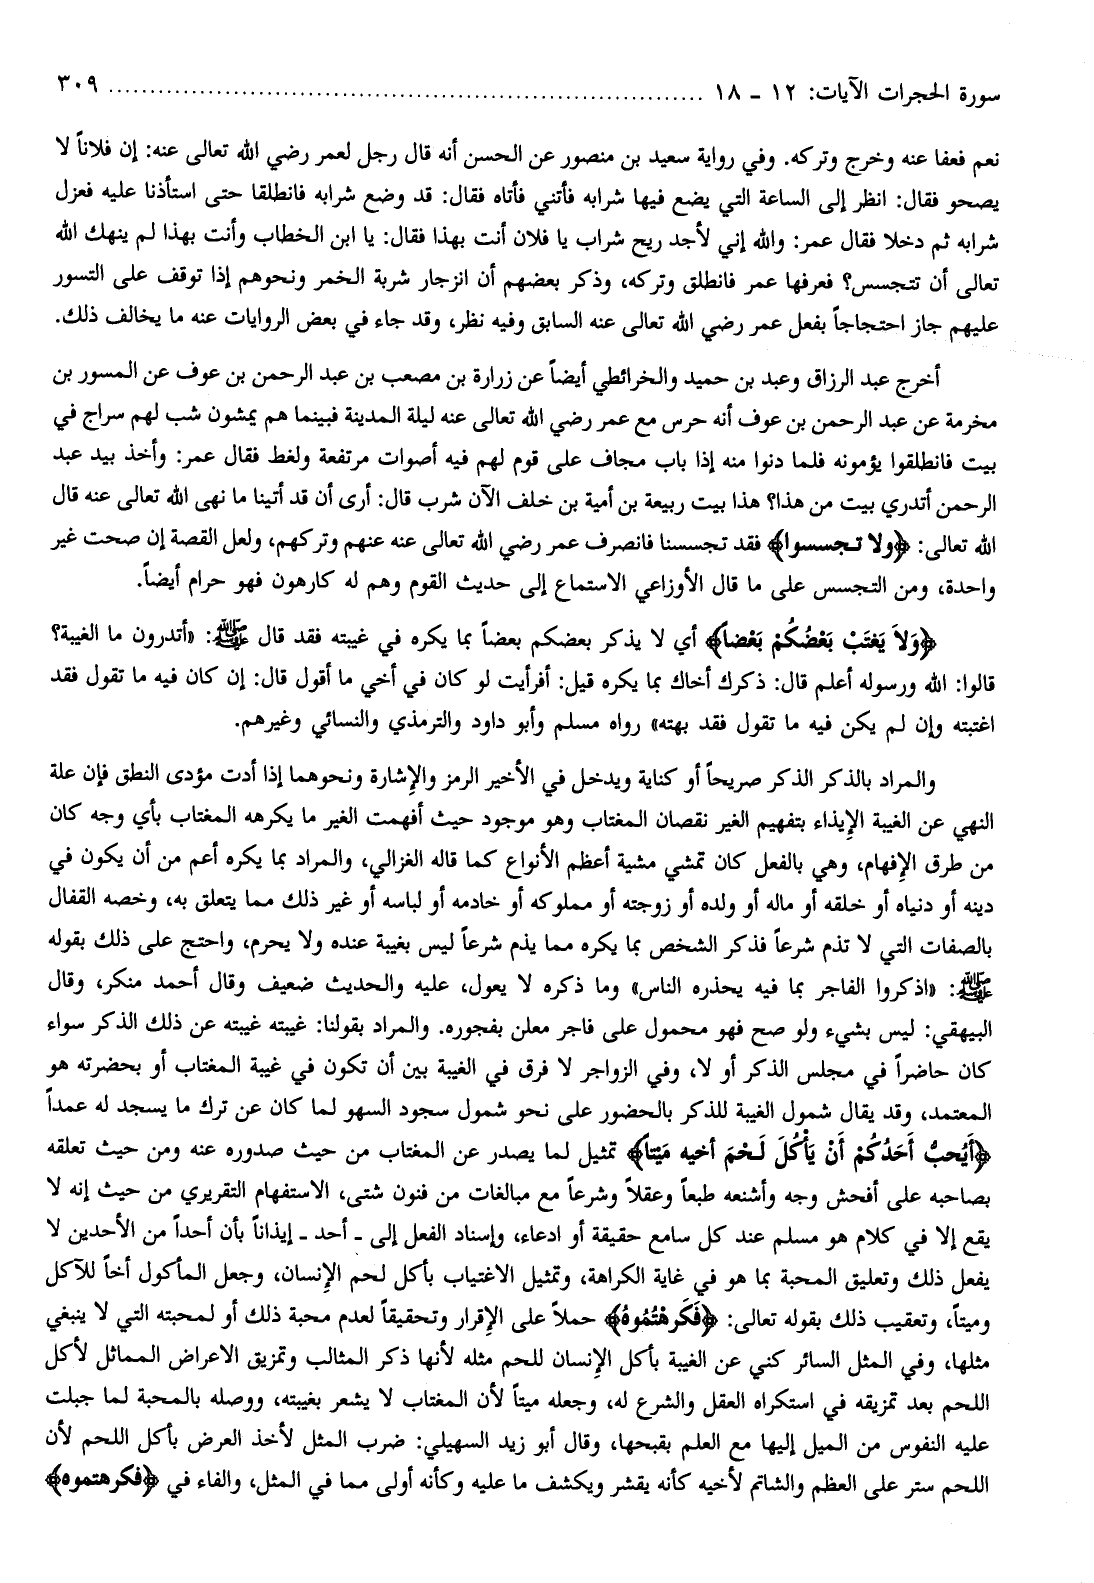 سورة الحجرات الآيات: ١٢ ـ ١٨ ........................................................................ ٣٠٩
نعم فعفا عنه وخرج وتركه. وفي رواية سعيد بن منصور عن الحسن أنه قال رجل لعمر رضي الله تعالى عنه: إن فلاناً لا
يصحو فقال: انظر إلى الساعة التي يضع فيها شرابه فأتني فأتاه فقال: قد وضع شرابه فانطلقا حتى استأذنا عليه فعزل
شرابه ثم دخلا فقال عمر: والله إني لأجد ريح شراب يا فلان أنت بهذا فقال: يا ابن الخطاب وأنت بهذا لم ينهك الله
تعالى أن تتجسس؟ فعرفها عمر فانطلق وتركه، وذكر بعضهم أن انزجار شربة الخمر ونحوهم إذا توقف على التسور
عليهم جاز احتجاجاً بفعل عمر رضي الله تعالى عنه السابق وفيه نظر، وقد جاء في بعض الروايات عنه ما يخالف ذلك.
أخرج عبد الرزاق وعبد بن حميد والخرائطي أيضاً عن زرارة بن مصعب بن عبد الرحمن بن عوف عن المسور بن
مخرمة عن عبد الرحمن بن عوف أنه حرس مع عمر رضي الله تعالى عنه ليلة المدينة فبينما هم يمشون شب لهم سراج في
بيت فانطلقوا يؤمونه فلما دنوا منه إذا باب مجاف على قوم لهم فيه أصوات مرتفعة ولغط فقال عمر: وأخذ بيد عبد
الرحمن أتدري بيت من هذا؟ هذا بيت ربيعة بن أمية بن خلف الآن شرب قال: أرى أن قد أتينا ما نهى الله تعالى عنه قال
الله تعالى: ﴿ولا تجسسوا﴾ فقد تجسسنا فانصرف عمر رضي الله تعالى عنه عنهم وتركهم، ولعل القصة إن صحت غير
واحدة، ومن التجسس على ما قال الأوزاعي الاستماع إلى حديث القوم وهم له كارهون فهو حرام أيضاً.
﴿وَلاَ يَغْتَبْ بَعْضُكُمْ بَعْضاً﴾ أي لا يذكر بعضكم بعضاً بما يكره في غيبته فقد قال ﷺ: «أتدرون ما الغيبة؟
قالوا: الله ورسوله أعلم قال: ذكرك أخاك بما يكره قيل: أفرأيت لو كان في أخي ما أقول قال: إن كان فيه ما تقول فقد
اغتبته وإن لم يكن فيه ما تقول فقد بهته» رواه مسلم وأبو داود والترمذي والنسائي وغيرهم.
والمراد بالذكر الذكر صريحاً أو كناية ويدخل في الأخير الرمز والإشارة ونحوهما إذا أدت مؤدى النطق فإن علة
النهي عن الغيبة الإيذاء بتفهيم الغير نقصان المغتاب وهو موجود حيث أفهمت الغير ما يكرهه المغتاب بأي وجه كان
من طرق الإفهام، وهي بالفعل كان تمشي مشية أعظم الأنواع كما قاله الغزالي، والمراد بما يكره أعم من أن يكون في
دينه أو دنياه أو خلقه أو ماله أو ولده أو زوجته أو مملوكه أو خادمه أو لباسه أو غير ذلك مما يتعلق به، وخصه القفال
بالصفات التي لا تذم شرعاً فذكر الشخص بما يكره مما يذم شرعاً ليس بغيبة عنده ولا يحرم، واحتج على ذلك بقوله
ﷺ: «اذكروا الفاجر بما فيه يحذره الناس» وما ذكره لا يعول، عليه والحديث ضعيف وقال أحمد منكر، وقال
البيهقي: ليس بشيء ولو صح فهو محمول على فاجر معلن بفجوره. والمراد بقولنا: غيبته غيبته عن ذلك الذكر سواء
كان حاضراً في مجلس الذكر أو لا، وفي الزواجر لا فرق في الغيبة بين أن تكون في غيبة المغتاب أو بحضرته هو
المعتمد، وقد يقال شمول الغيبة للذكر بالحضور على نحو شمول سجود السهو لما كان عن ترك ما يسجد له عمداً
﴿أَيُحبُّ أَحَدُكُمْ أَنْ يَأْكُلَ لَحْمَ أخيه مَيْتاً﴾ تمثيل لما يصدر عن المغتاب من حيث صدوره عنه ومن حيث تعلقه
بصاحبه على أفحش وجه وأشنعه طبعاً وعقلاً وشرعاً مع مبالغات من فنون شتى، الاستفهام التقريري من حيث إنه لا
يقع إلا في كلام هو مسلم عند كل سامع حقيقة أو ادعاء، وإسناد الفعل إلى ـ أحد ـ إيذاناً بأن أحداً من الأحدين لا
يفعل ذلك وتعليق المحبة بما هو في غاية الكراهة، وتمثيل الاغتياب بأكل لحم الإنسان، وجعل المأكول أخاً للآكل
وميتاً، وتعقيب ذلك بقوله تعالى: ﴿فَكَرهْتُمُوهُ﴾ حملاً على الإقرار وتحقيقاً لعدم محبة ذلك أو لمحبته التي لا ينبغي
مثلها، وفي المثل السائر كني عن الغيبة بأكل الإنسان للحم مثله لأنها ذكر المثالب وتمزيق الاعراض المماثل لأكل
اللحم بعد تمزيقه في استكراه العقل والشرع له، وجعله ميتاً لأن المغتاب لا يشعر بغيبته، ووصله بالمحبة لما جبلت
عليه النفوس من الميل إليها مع العلم بقبحها، وقال أبو زيد السهيلي: ضرب المثل لأخذ العرض بأكل اللحم لأن
اللحم ستر على العظم والشاتم لأخيه كأنه يقشر ويكشف ما عليه وكأنه أولى مما في المثل، والفاء في ﴿فكرهتموه﴾